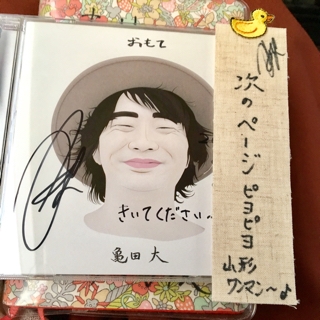 おもて
きいてください〜
亀田 大
次のページ ピヨピヨ
山形
ワンマン〜♪